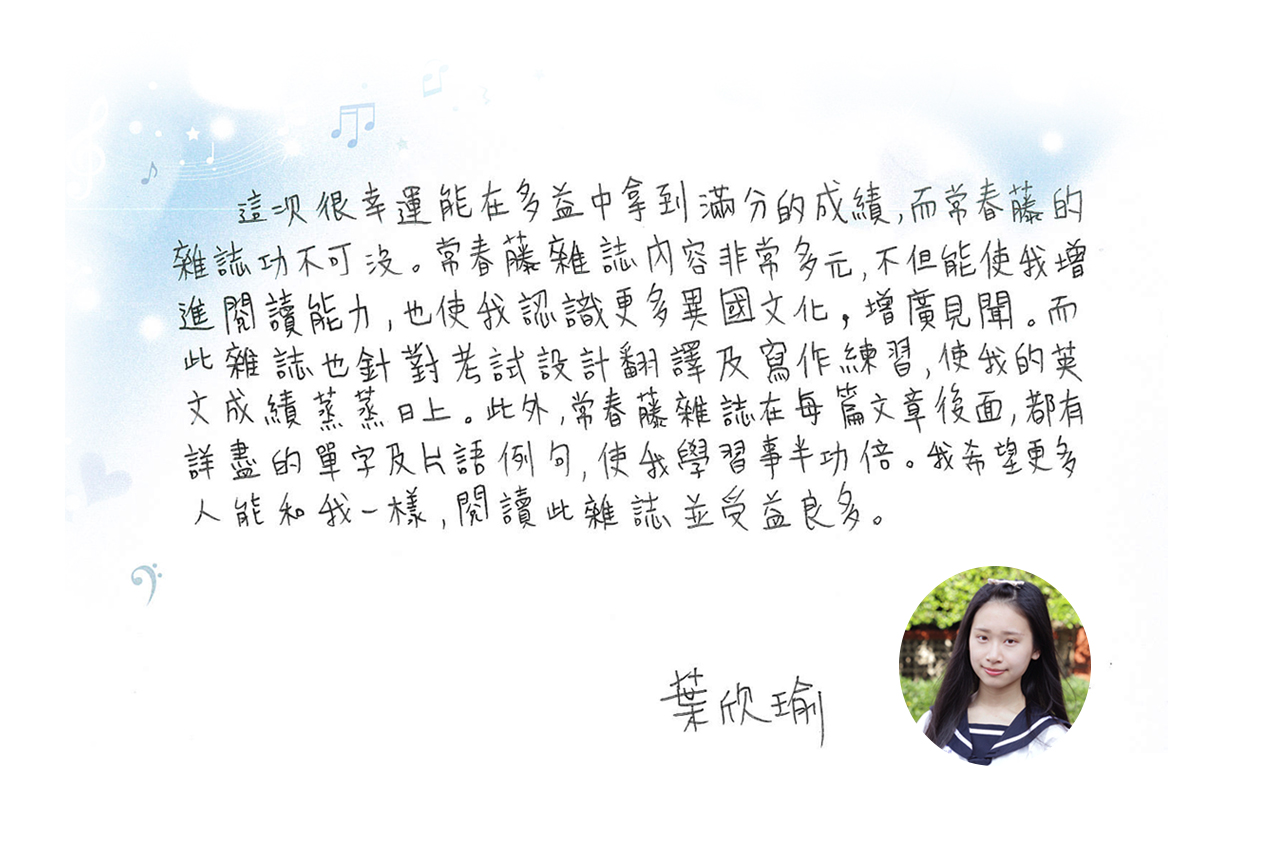 這次很幸運能在多益中拿到滿分的成績,而常春藤的
雜誌功不可沒。常春藤雜誌內容非常多元,不但能使我增
進閱讀能力,也使我認識更多異國文化,增廣見聞。而
此雜誌也針對考試設計翻譯及寫作練習,使我的英
文成績蒸蒸日上。此外,常春藤雜誌在每篇文章後面,都有
詳盡的單字及片語例句,使我學習事半功倍。我希望更多
人能和我一樣,閱讀此雜誌並受益良多。
葉欣瑜